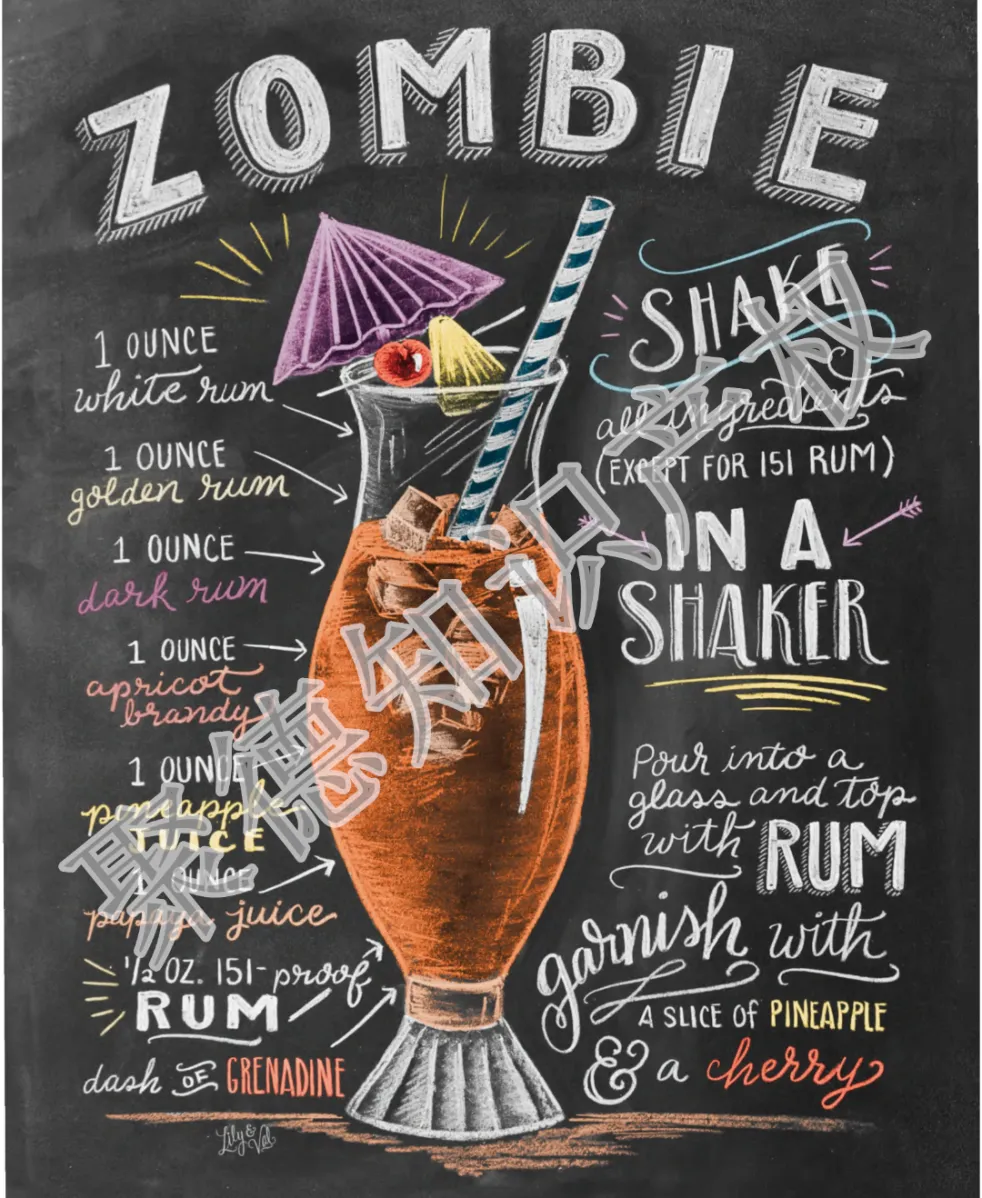 ZOMBIE
1 OUNCE
white rum
1 OUNCE
golden rum
1 OUNCE
dark rum
1 OUNCE
apricot
brandy
1 OUNCE
pineapple
JUICE
1 OUNCE
papaya juice
1/2 OZ. 151-proof
RUM
dash OF GRENADINE
SHAKE
all ingredients
(EXCEPT FOR 151 RUM)
IN A
SHAKER
Pour into a
glass and top
with RUM
garnish with
A SLICE OF PINEAPPLE
& a cherry
Lily & Val
聚德知识产权